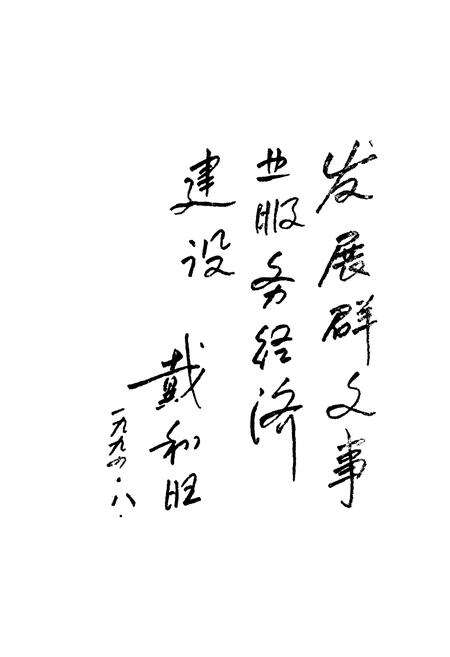 发展群文事
业服务经济
建设
戴和旺
一九九四·八·